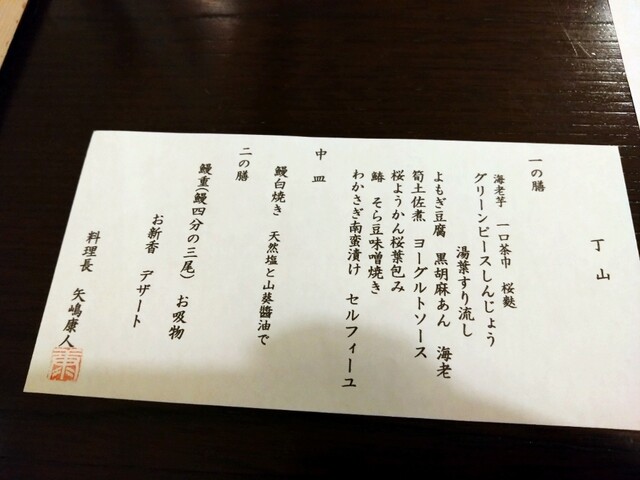 丁山
一の膳
海老芋 一口茶巾 桜麩
グリーンピースしんじょう
湯葉すり流し
よもぎ豆腐 黒胡麻あん 海老
筍土佐煮 ヨーグルトソース
桜ようかん桜葉包み
鰆 そら豆味噌焼き
わかさぎ南蛮漬け セルフィーユ
中皿
鰻白焼き 天然塩と山葵醬油で
二の膳
鰻重(鰻四分の三尾) お吸物
お新香 デザート
料理長 矢嶋康人